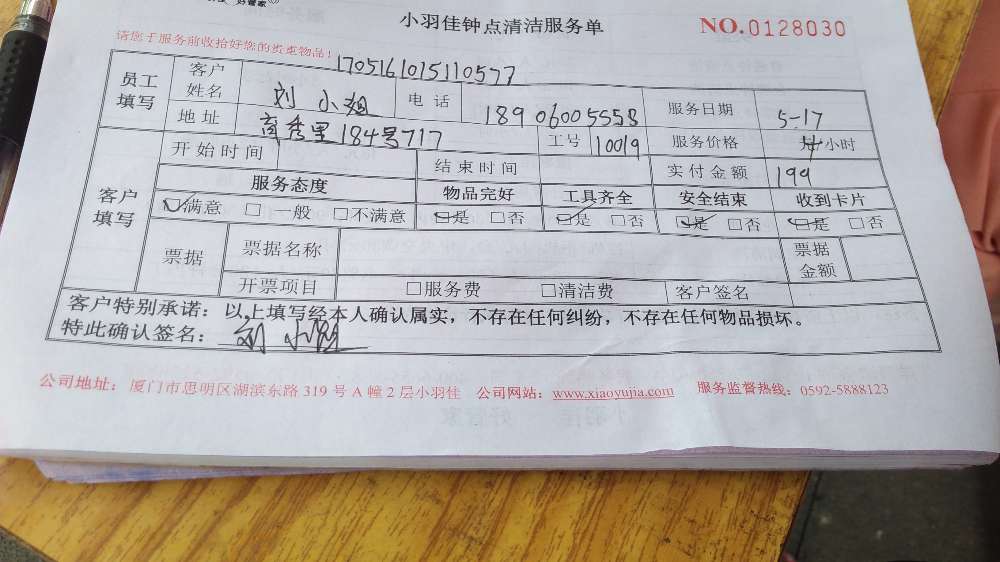 好管家®
小羽佳钟点清洁服务单
NO.0128030
请您于服务前收拾好您的贵重物品!
1705161015110577
员工填写 客户姓名 刘小姐 电话 18906005558 服务日期 5-17
地址 育秀里184号717 工号 10019 服务价格 小时
客户填写 开始时间 结束时间 实付金额 199
服务态度 物品完好 工具齐全 安全结束 收到卡片
☑满意 □一般 □不满意 ☑是 □否 ☑是 □否 ☑是 □否 ☑是 □否
票据 票据名称 票据金额
开票项目 □服务费 □清洁费 客户签名
客户特别承诺:以上填写经本人确认属实,不存在任何纠纷,不存在任何物品损坏。
特此确认签名:刘小姐
公司地址:厦门市思明区湖滨东路 319 号 A 幢 2 层小羽佳 公司网站:www.xiaoyujia.com 服务监督热线:0592-5888123